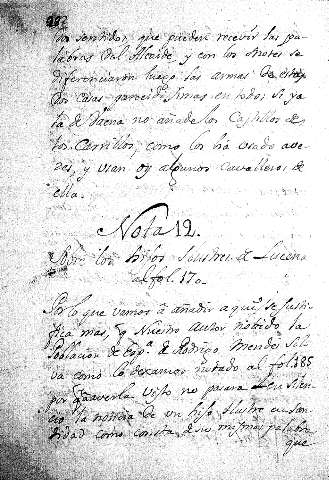 do sentidos, que pueden recevir las pa-
labras del Alcaide, y con los motes se
diferenciaron luego las armas de estas
dos casas parecidissimas en todo; si ya
la de Baena no añade los Castillos de
los Carrillos, como los ha usado a ve-
ces, y usan oy algunos Cavalleros de
ella.
Nota 12.
Sobre los hijos Ilustres de Lucena
al fol. 170.
Por lo que vamos a añadir aqui se justi-
fica mas, q Nuestro Autor no vido la
Poblacion de Espª. de Rodrigo Mendez Sil-
va como lo dexamos notado al fol. 385
por q a averla visto no pasara en silen-
cio la noticia de un hijo Ilustre en San-
tidad como consta de sus mismas palabras
que